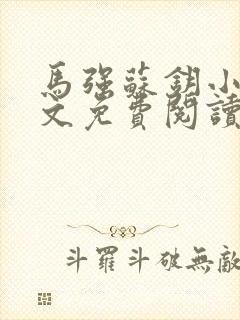 馬强蘇鈅小
文免費閱讀
斗羅斗破無敵